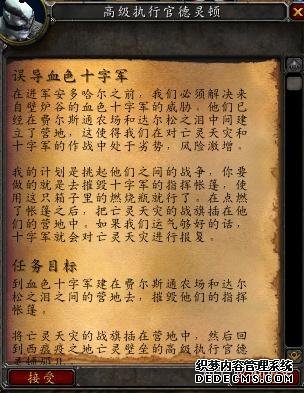 高级执行官德灵顿
误导血色十字军
在进军安多哈尔之前，我们必须解决来
自壁炉谷的血色十字军的威胁。他们已
经在费尔斯通农场和达尔松之泪中间建
立了营地，这使得我们在对亡灵天灾和
十字军的作战中处于劣势，风险激增。
我的计划是挑起他们之间的战争，你要
做的就是去摧毁十字军的指挥帐篷，使
用这只箱子里的燃烧瓶就行了。在点燃
了帐篷之后，把亡灵天灾的战旗插在他
们的营地中。如果我们运气够好的话，
十字军就会对亡灵天灾进行报复。
任务目标
到血色十字军建在费尔斯通农场和达尔
松之泪之间的营地去，摧毁他们的指挥
帐篷。
将亡灵天灾的战旗插在营地中，然后回
到西瘟疫之地亡灵壁垒的高级执行官德
接受
织梦内容管理系统
DEDECMS.COM